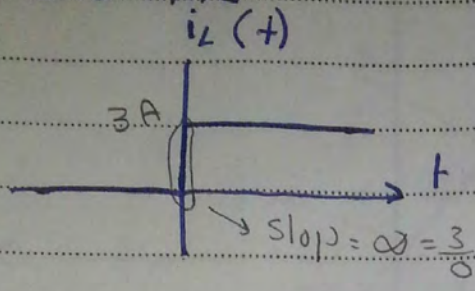 i_L (t)
3A
t
Slop = ∞ = 3/0